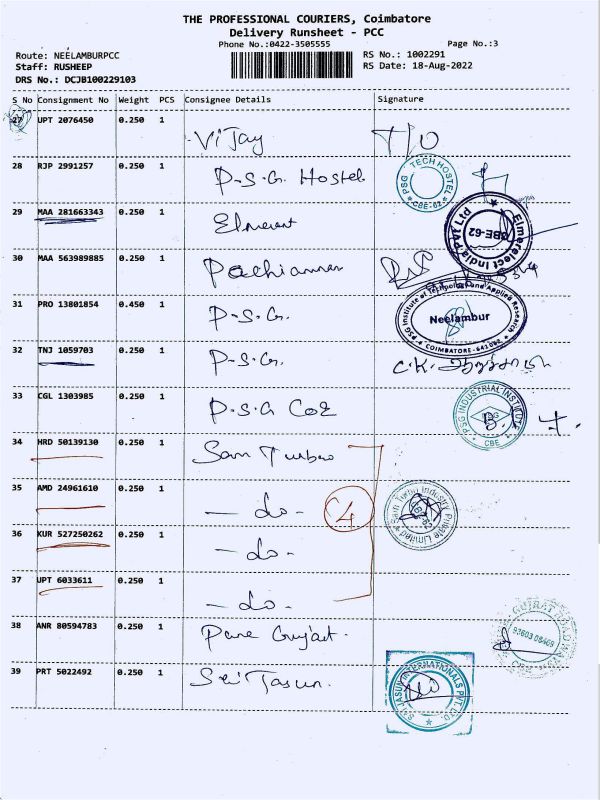 THE PROFESSIONAL COURIERS, Coimbatore
Delivery Runsheet - PCC
Phone No.:0422-3505555 Page No.:3
Route: NEELAMBURPCC RS No.: 1002291
Staff: RUSHEEP RS Date: 18-Aug-2022
DRS No.: DCJB100229103
S No Consignment No Weight PCS Consignee Details Signature
27 UPT 2076450 0.250 1 Vijay T/O
28 RJP 2991257 0.250 1 P-S-G. Hostel
PSG TECH HOSTEL CBE-62
29 MAA 281663343 0.250 1
Elmerelect India Pvt Ltd CBE-62
30 MAA 563989885 0.250 1
31 PRO 13801854 0.450 1 P-S-G.
PSG Institute of Technology and Applied Research Neelambur COIMBATORE-641062
32 TNJ 1059703 0.250 1 P-S-G.
33 CGL 1303985 0.250 1 P-S-G COE
PSG INDUSTRIAL INSTITUTE PSG CBE
34 HRD 50139130 0.250 1 Sam Turbo
35 AMD 24961610 0.250 1 - do -
4
Sam Turbo Industry Private Limited
36 KUR 527250262 0.250 1 - do -
37 UPT 6033611 0.250 1 - do -
38 ANR 80594783 0.250 1
39 PRT 5022492 0.250 1 Sri Jasun
SRI JASUN INTERNATIONALS PVT LTD.